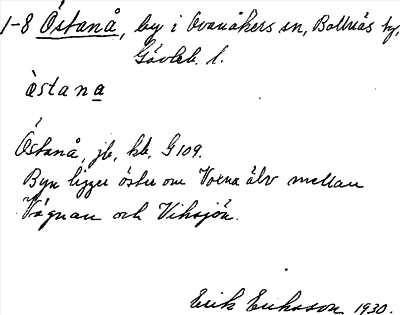 1-8 Östanå, by i Ovanåkers sn, Bollnäs tg,
Gävleb. l.
östana
Östanå, jb, kb, G 109.
Byn ligger öster om Voxna älv mellan
Vågnan och Viksjön.
Erik Eriksson 1930.